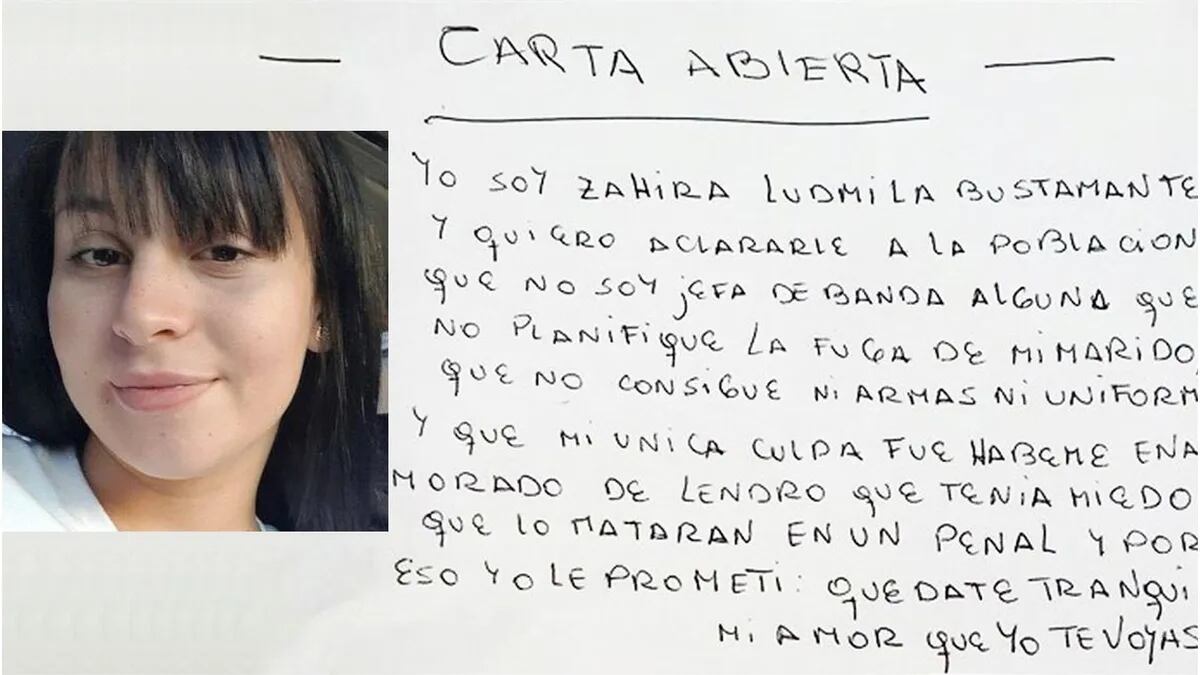 CARTA ABIERTA
YO SOY ZAHIRA LUDMILA BUSTAMANTE
Y QUIERO ACLARARLE A LA POBLACION
QUE NO SOY JEFA DE BANDA ALGUNA QUE
NO PLANIFIQUE LA FUGA DE MI MARIDO,
QUE NO CONSIGUE NI ARMAS NI UNIFORM
Y QUE MI UNICA CULPA FUE HABEME ENA
MORADO DE LENDRO QUE TENIA MIEDO
QUE LO MATARAN EN UN PENAL Y POR
ESO YO LE PROMETI: QUEDATE TRANQUI
MI AMOR QUE YO TE VOY AS